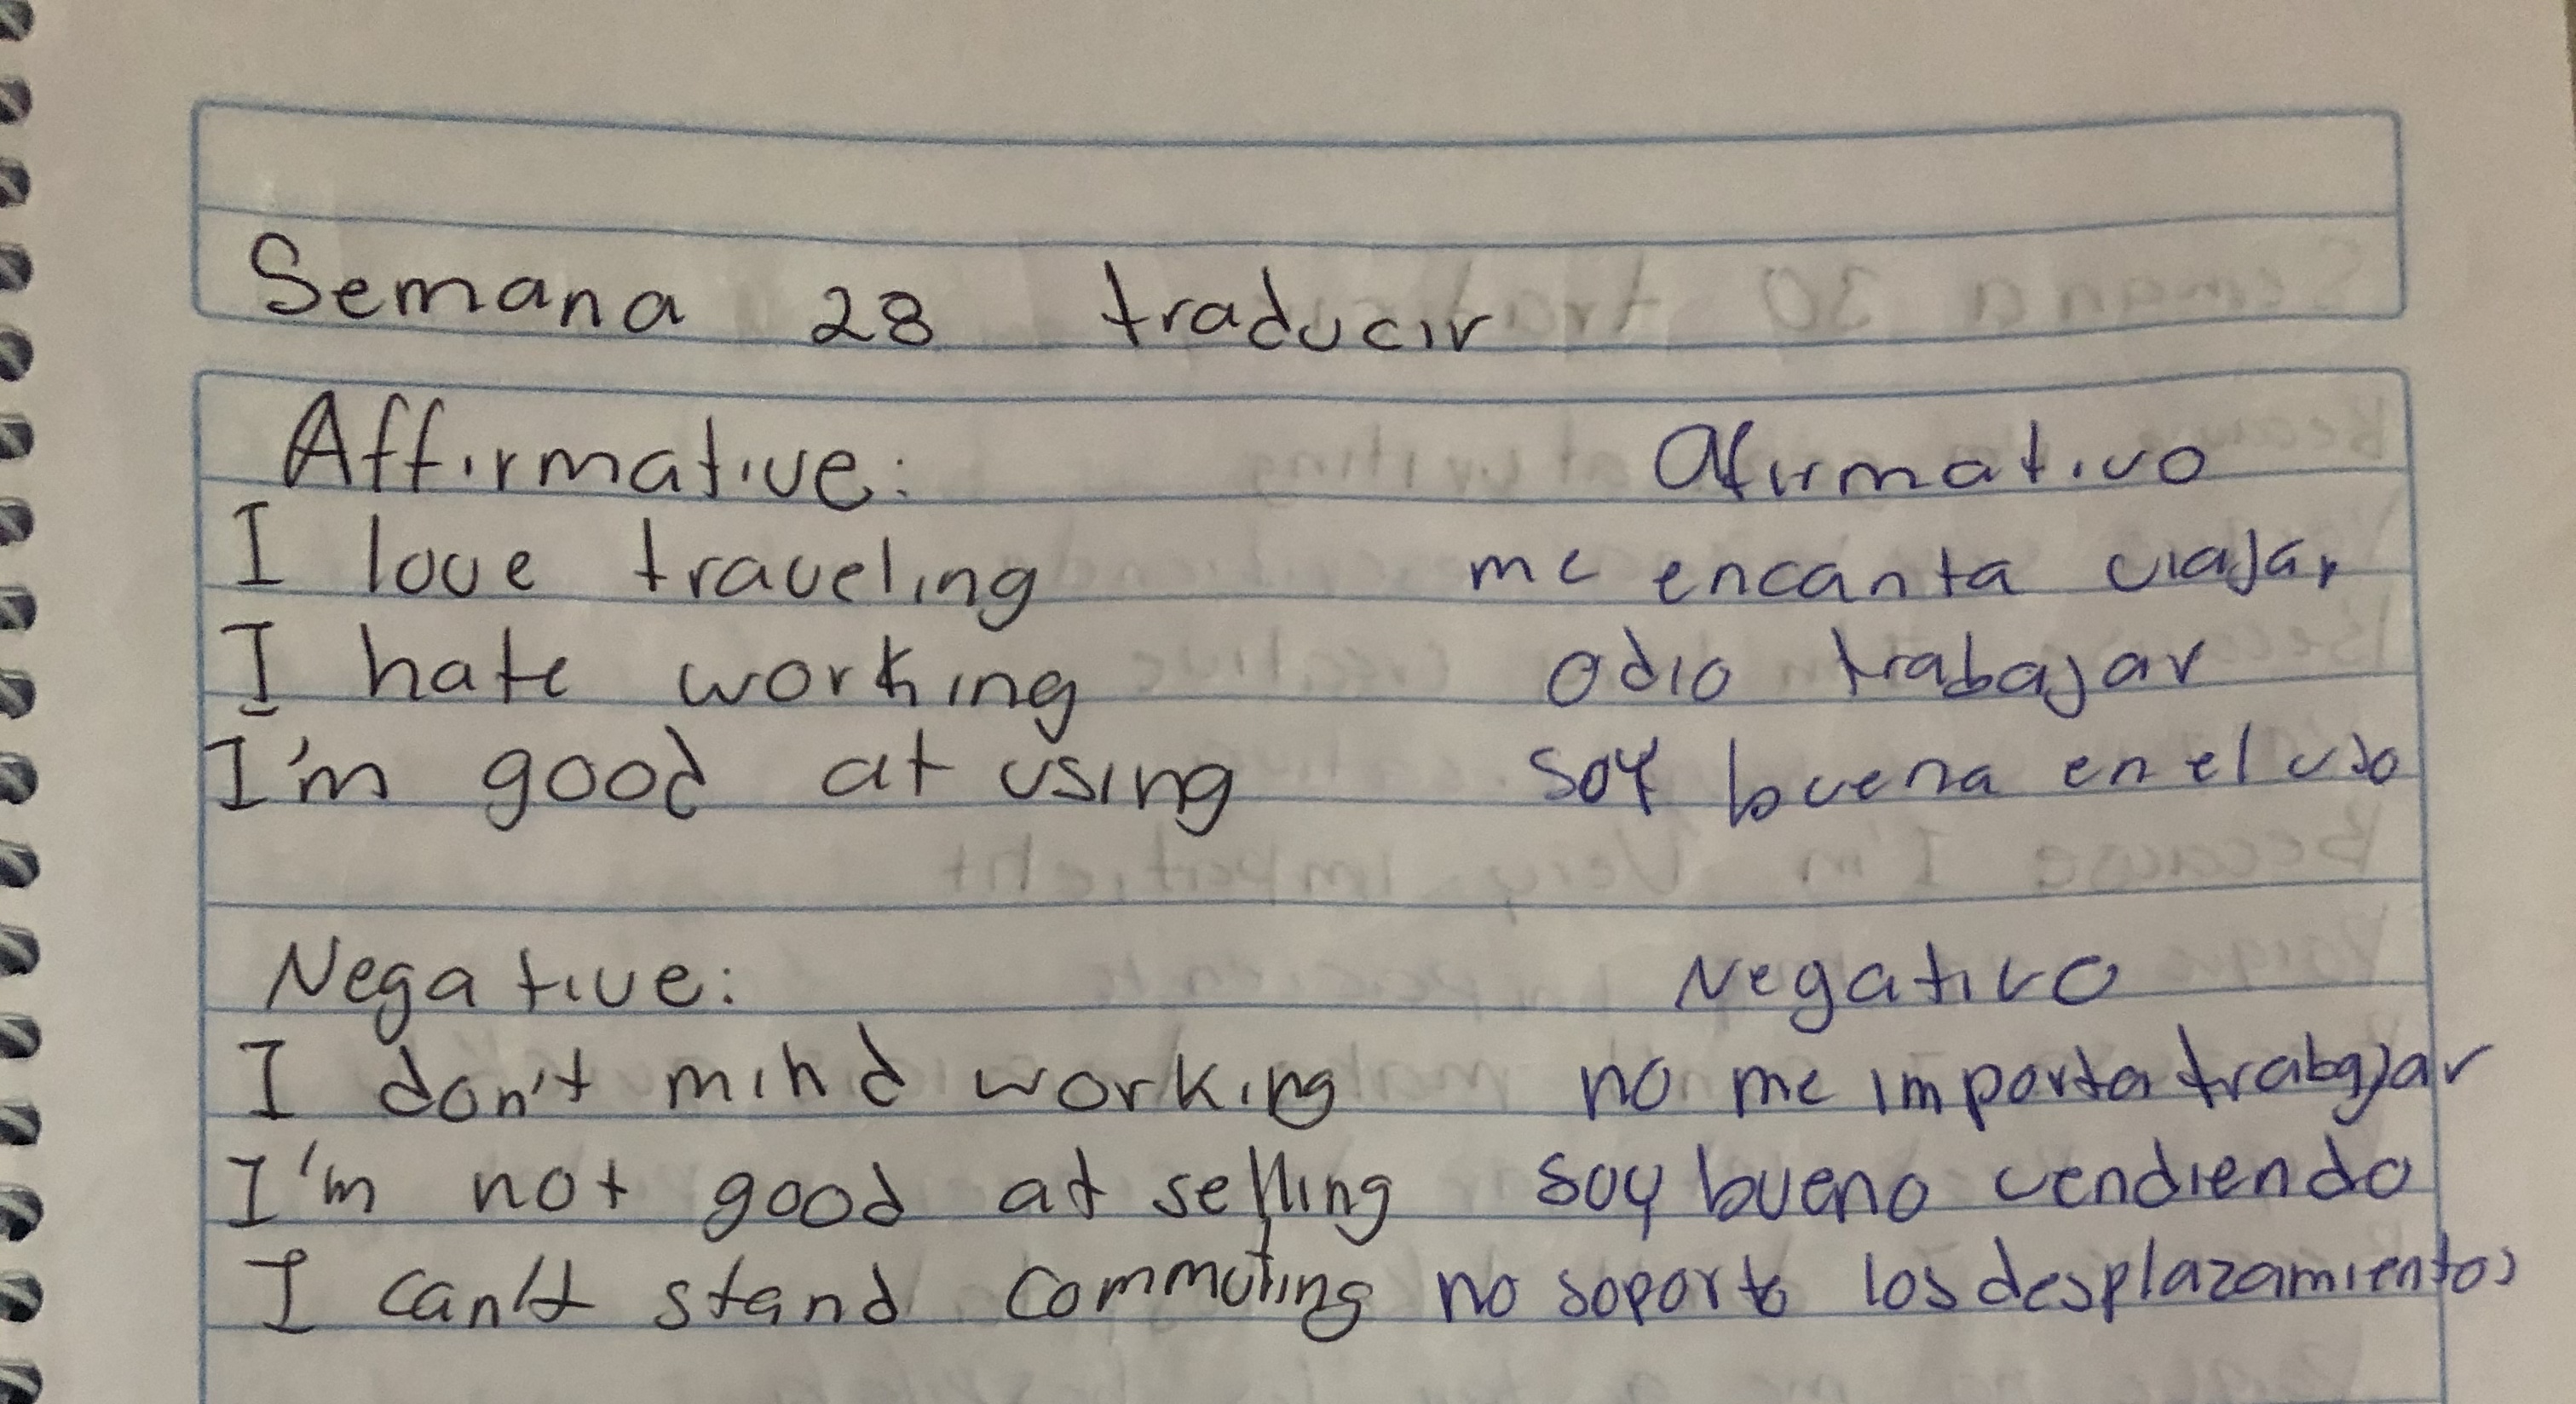 Semana 28 traducir
Affirmative: Afirmativo
I love traveling me encanta viajar
I hate working odio trabajar
I'm good at using soy buena en el uso
Negative: Negativo
I don't mind working no me importa trabajar
I'm not good at selling soy bueno vendiendo
I can't stand commuting no soporto los desplazamientos